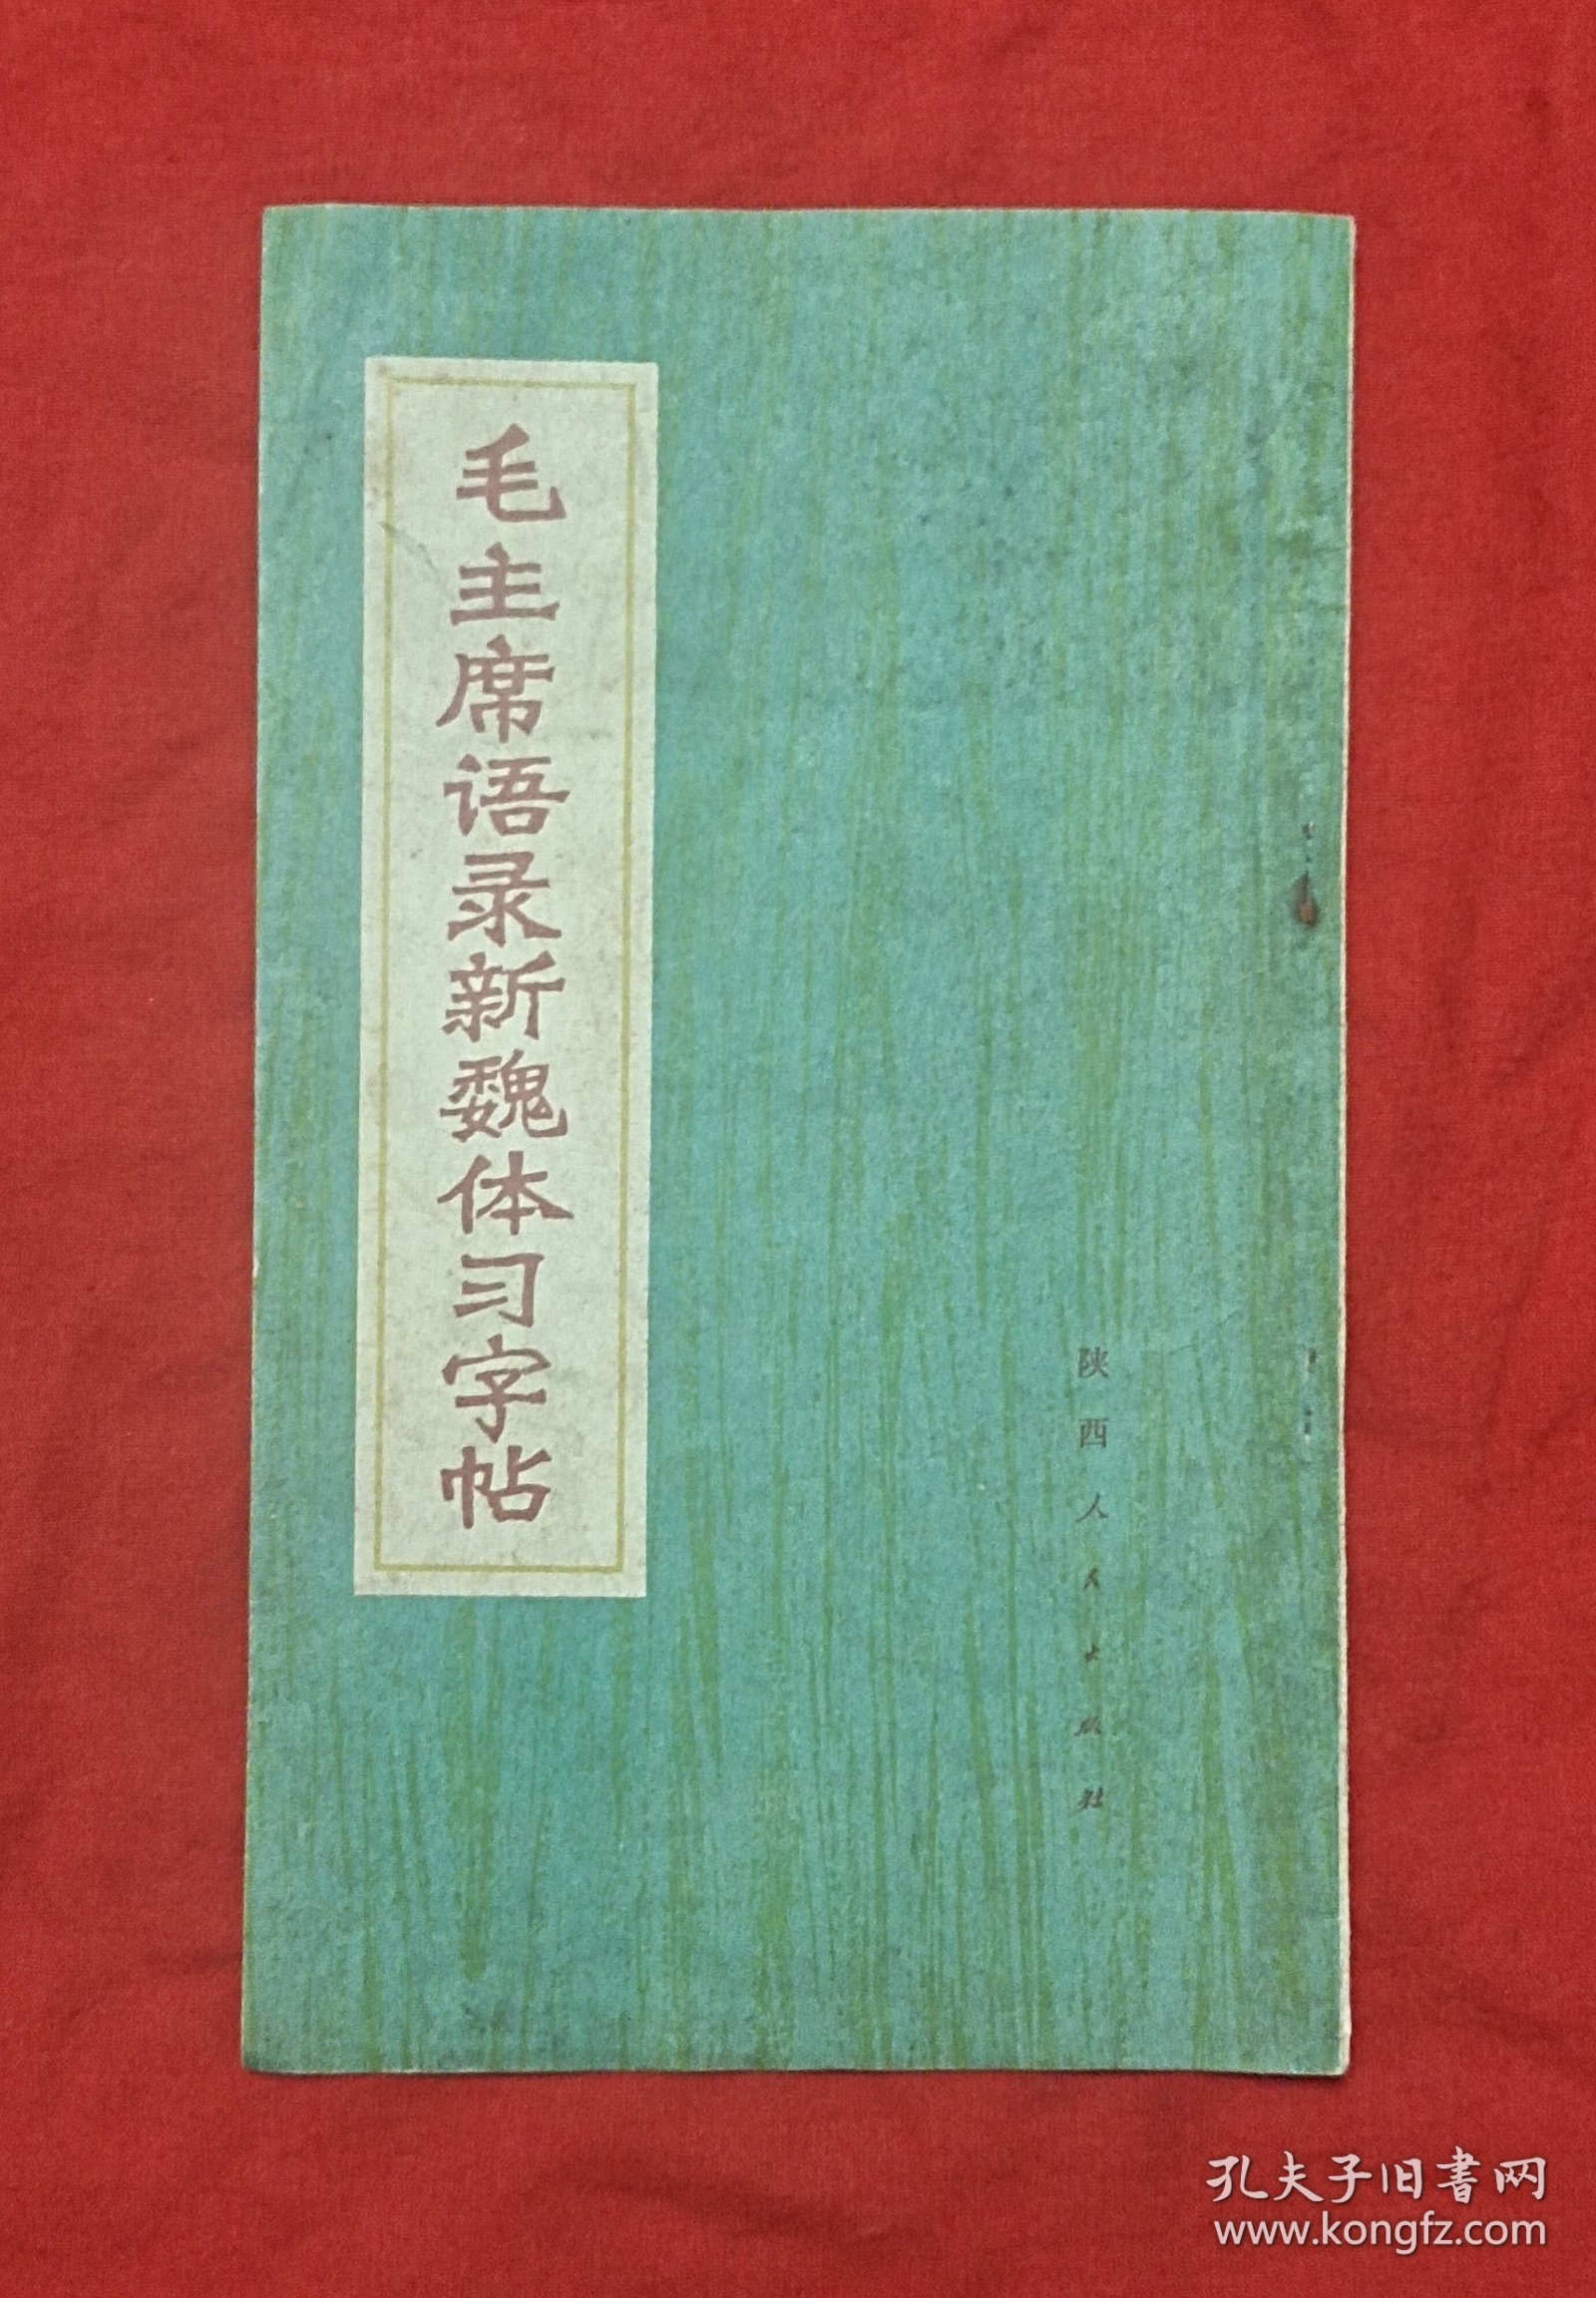 毛主席语录新魏体习字帖
陕西人民出版社
孔夫子旧書网
www.kongfz.com